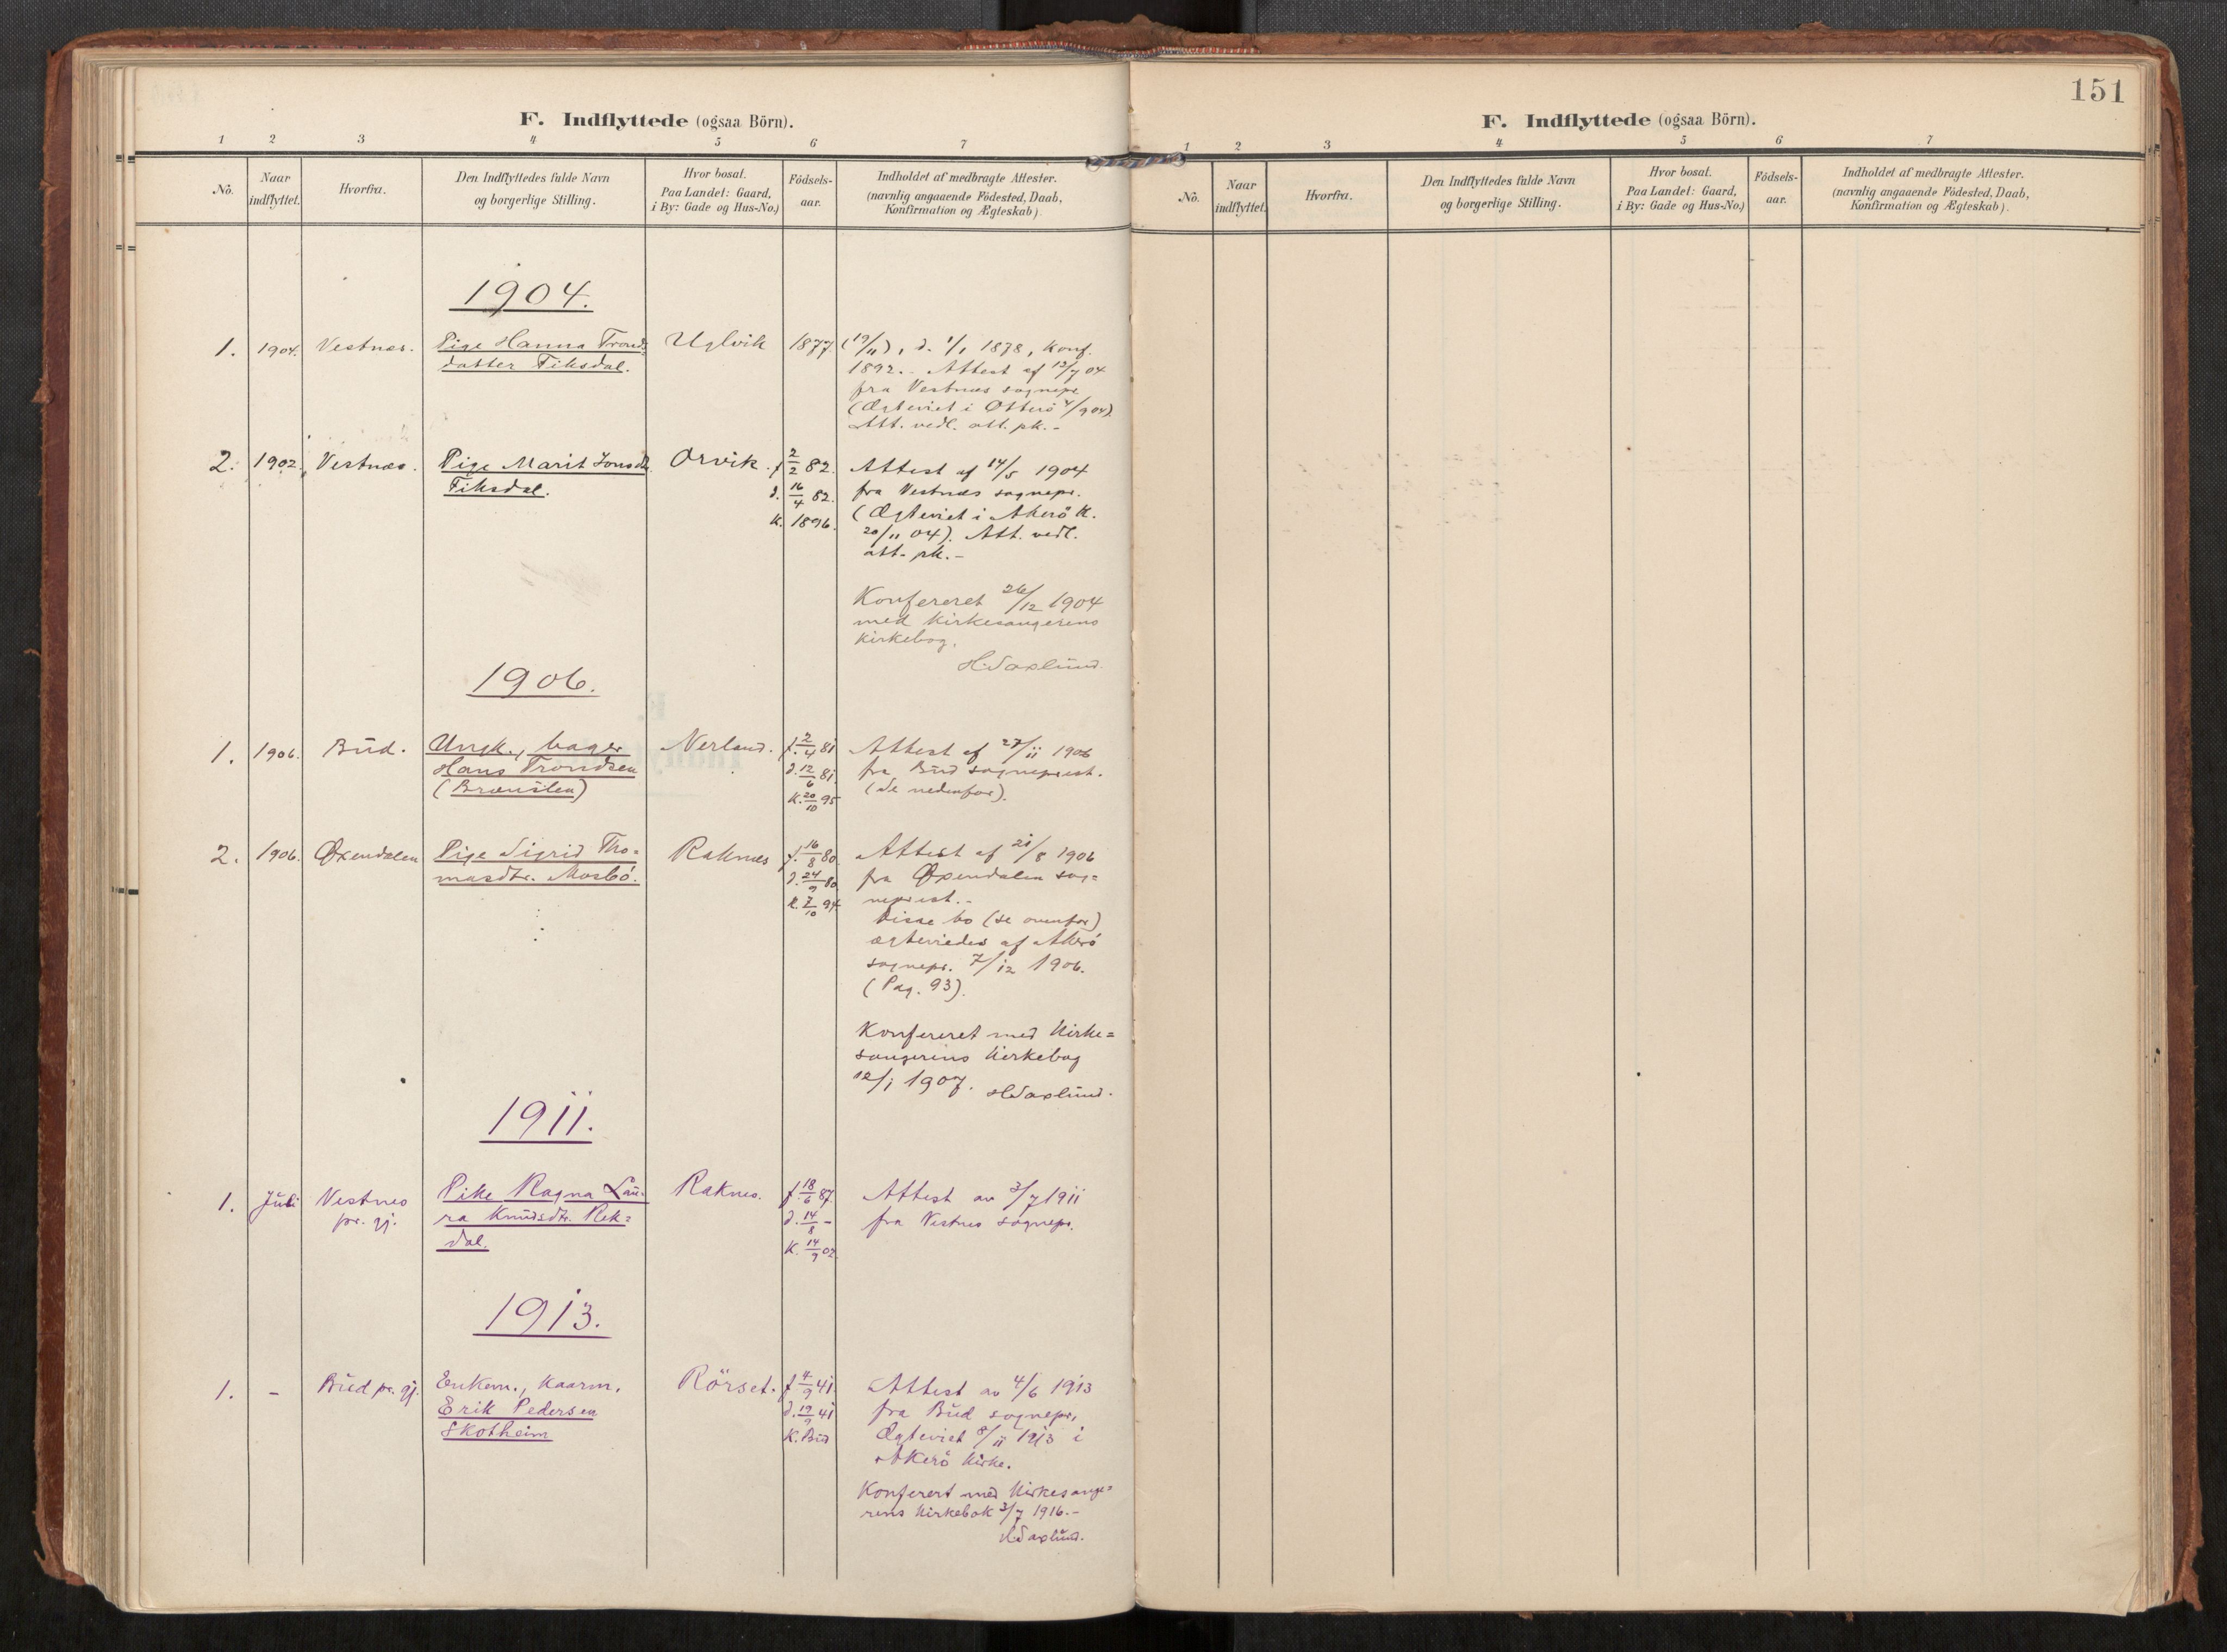 F. Indflyttede (ogsaa Börn).
1 2 3 4 5 6 7
No. Naar indflyttet. Hvorfra. Den Indflyttedes fulde Navn og borgerlige Stilling. Hvor bosat. Paa Landet: Gaard, i By: Gade og Hus-No.) Födsels-aar. Indholdet af medbragte Attester. (navnlig angaaende Födested, Daab, Konfirmation og Ægteskab).
1904.
1. 1904. Vestnæs. Pige Hanna Tronds Uglvik 1877 (19/11), d. 1/1 1878, Konf.
datter Fiksdal. 1892. - Attest af 13/7 04
fra Vestnæs sognepr.
(Ægteviet i Otterö 4/9 04).
Att. vedl. att. pk. -
2. 1902. Vestnæs. Pige Marit Jonsdtr. Orvik. f 2/2 82. Attest af 14/5 1904
Fiksdal. d. 16/4 82. fra Vestnæs sognepr.
K. 1896. (Ægteviet i Akerö K.
20/11 04). Att. vedl.
att. pk. -
Konfereret 26/12 1904
med Kirkesangerens
Kirkebog.
H. Saxlund.
1906.
1. 1906. Bud. Ungk., bager Nerland. f. 2/4 81 Attest af 27/11 1906
Hans Trondsen d. 12/6 81. fra Bud sogneprest.
K. 20/10 95 (Se nedenfor).
2. 1906. Øxendalen Pige Sigrid Tho= Raknes f. 16/8 80. Attest af 21/8 1906
masdtr. Mosbö. d. 24/9 80 fra Øxendalen sog=
K. 7/10 94. neprest. -
Disse to (se ovenfor)
ægteviedes af Akerö
sognepr. 7/12 1906.
(Pag. 93).
Konfereret med Kirke=
sangerens Kirkebog
12/1 1907. H. Saxlund.
1911.
1. Juli Vestnes Pike Ragna Lau= Raknes. f. 18/6 87. Attest av 3/7 1911
pr. gj. ra Knudsdtr. Rek= d. 14/8 - fra Vestnes sognepr.
dal. K. 14/9 02
1913.
1. - Bud pr. gj. Enkem., Kaarm. Rörset. f 4/9 41. Attest av 4/6 1913
Erik Pedersen d. 19/9 41 fra Bud sognepr.
Skotheim K. Bud Ægteviet 8/11 1913 i
Akerö Kirke.
Konferert med Kirkesange=
rens Kirkebok 3/7 1916. -
H. Saxlund.
151
F. Indflyttede (ogsaa Börn).
1 2 3 4 5 6 7
No. Naar indflyttet. Hvorfra. Den Indflyttedes fulde Navn og borgerlige Stilling. Hvor bosat. Paa Landet: Gaard, i By: Gade og Hus-No.) Födsels-aar. Indholdet af medbragte Attester. (navnlig angaaende Födested, Daab, Konfirmation og Ægteskab).